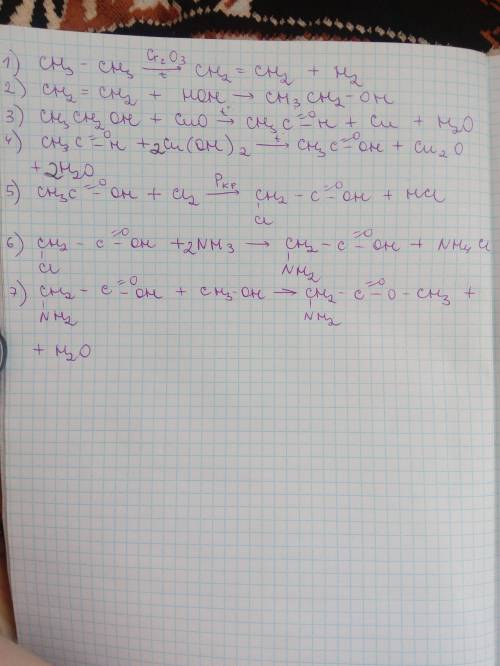 1) CH3 - CH3 →(Cr2O3, t) CH2 = CH2 + H2
2) CH2 = CH2 + HOH → CH3 CH2 - OH
3) CH3CH2OH + CuO →(t°) CH3 C =O - H + Cu + H2O
4) CH3 C =O - H + 2Cu(OH)2 →(t) CH3 C =O - OH + Cu2O
+ 2H2O
5) CH3C =O - OH + Cl2 →(Pкр) CH2 - C =O - OH + HCl
Cl
6) CH2 - C =O - OH + 2NH3 → CH2 - C =O - OH + NH4Cl
Cl NH2
7) CH2 - C =O - OH + CH3OH → CH2 - C =O - O - CH3 +
NH2 NH2
+ H2O